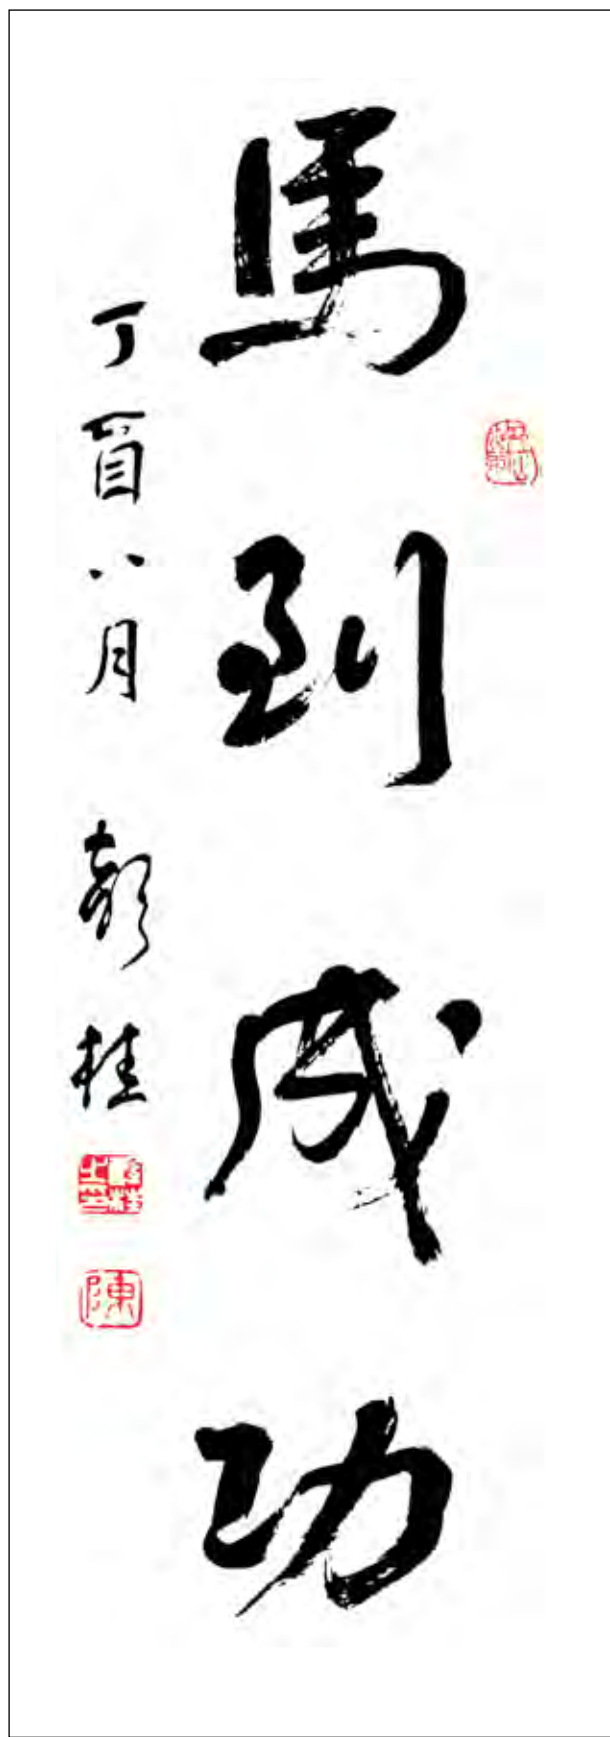 馬到成功
丁酉八月 彭桂
陳